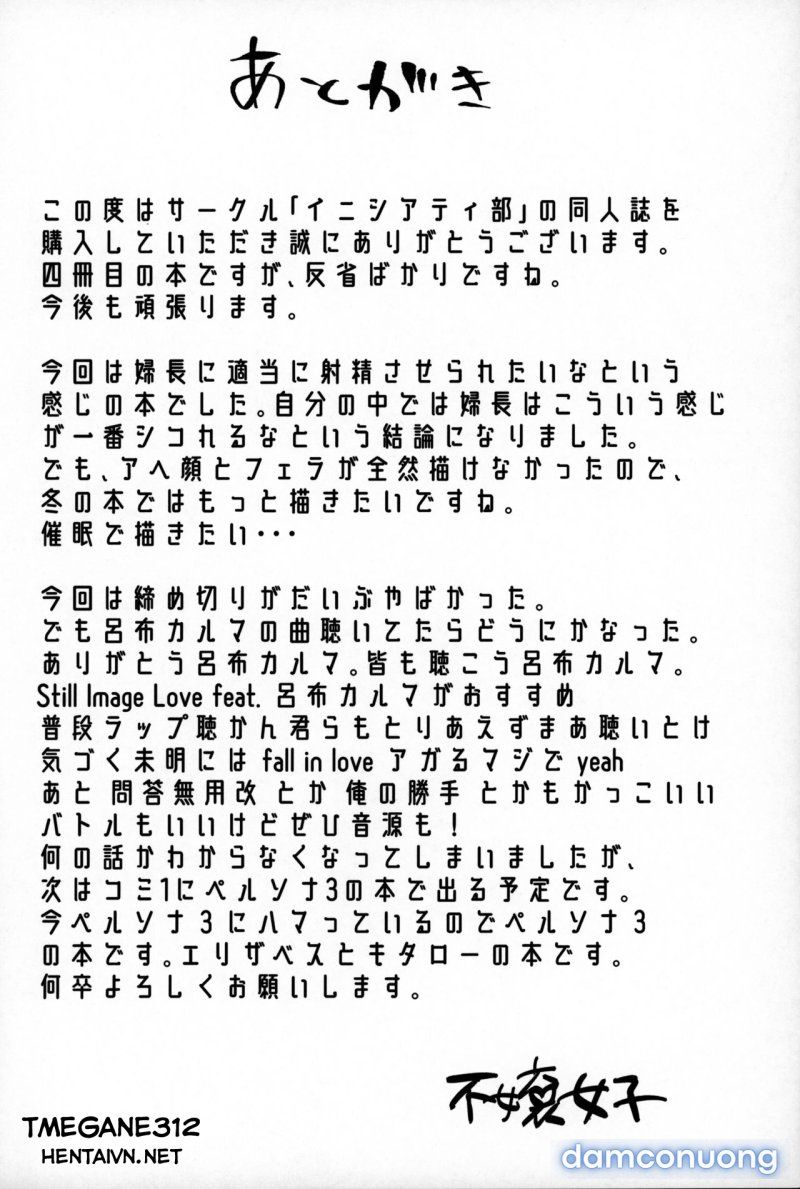 あとがき
この度はサークル「イニシアティ部」の同人誌を
購入していただき誠にありがとうございます。
四冊目の本ですが、反省ばかりですね。
今後も頑張ります。
今回は婦長に適当に射精させられたいなという
感じの本でした。自分の中では婦長はこういう感じ
が一番シコれるなという結論になりました。
でも、アヘ顔とフェラが全然描けなかったので、
冬の本ではもっと描きたいですね。
催眠で描きたい・・・
今回は締め切りがだいぶやばかった。
でも呂布カルマの曲聴いてたらどうにかなった。
ありがとう呂布カルマ。皆も聴こう呂布カルマ。
Still Image Love feat. 呂布カルマがおすすめ
普段ラップ聴かん君らもとりあえずまあ聴いとけ
気づく未明には fall in love アガるマジで yeah
あと 問答無用改 とか 俺の勝手 とかもかっこいい
バトルもいいけどぜひ音源も！
何の話かわからなくなってしまいましたが、
次はコミ1にペルソナ3の本で出る予定です。
今ペルソナ3にハマっているのでペルソナ3
の本です。エリザベスとキタローの本です。
何卒よろしくお願いします。
不嬢女子
TMEGANE312
HENTAIVN.NET
damconuong